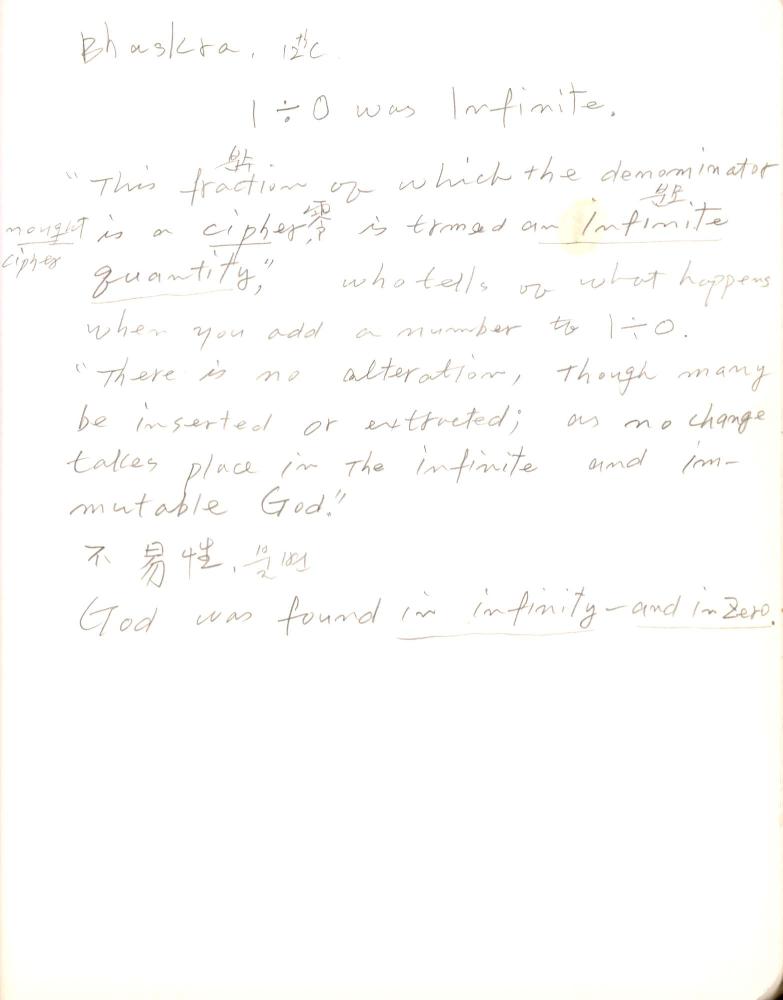 Bhaskra. 12th C.
1 ÷ 0 was Infinite.
분수
"This fraction of which the denominator
분모
nought is a cipher, 零 is trmed an Infinite
cipher quantity," who tells of what happens
when you add a number to 1÷0.
"There is no alteration, Though many
be inserted or exttracted; as no change
takes place in The infinite and im-
mutable God."
不易性. 불변
God was found in infinity - and in Zero.